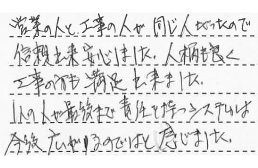 営業の人と、工事の人が同じ人だったので
信頼出来安心しました。人柄も良く
工事の方も満足出来ました。
1人の人が最後まで責任を持つシステムは
今後広がるのではと感じました。